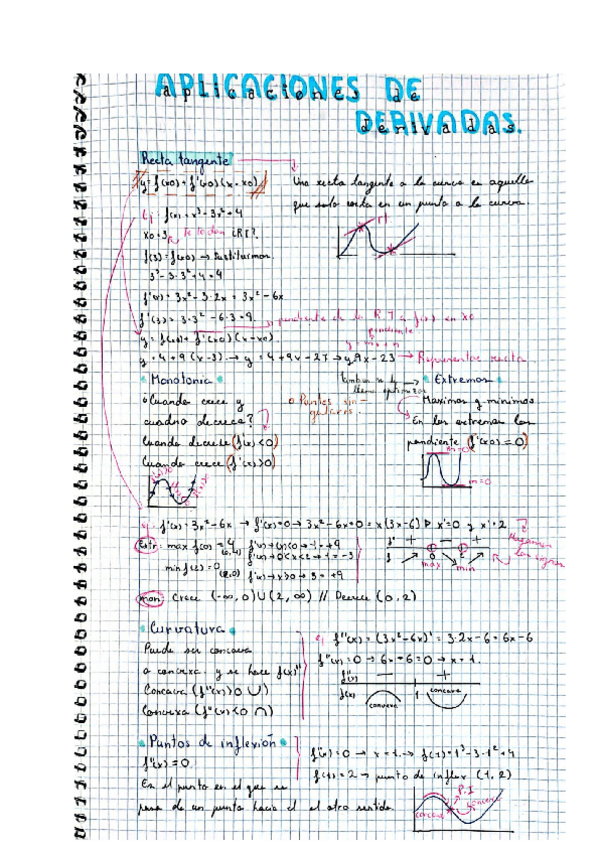 APLICACIONES DE
DERIVADAS.
Recta tangente
y = f(x0) + f'(x0)(x - x0)
Una recta tangente a la curva es aquella
que solo corta en un punto a la curva.
f(x) = x³ - 3x² + 4
x0 = 3
f(3) = f(x0) → Sustituimos
3³ - 3·3² + 4 = 4
f'(x) = 3x² - 3·2x = 3x² - 6x
f'(3) = 3·3² - 6·3 = 9
pendiente de la R.T a f(x) en x0
pendiente
y = mx + n
y = f(x0) + f'(x0)(x - x0)
y = 4 + 9(x - 3) → y = 4 + 9x - 27 → y = 9x - 23 → Representar recta
Monotonia
¿Cuando crece y
cuando decrece?
Cuando decrece (f'(x) < 0)
Cuando crece (f'(x) > 0)
Puntos sin-
gulares.
Extremos
Maximos y minimos
En los extremos las
pendiente (f'(x0) = 0)
m=0
m=0
f'(x) = 3x² - 6x → f'(x) = 0 → 3x² - 6x = 0 = x(3x - 6) x = 0 y x = 2
Extr: max f(0) = 4 (0,4)
min f(2) = 0 (2,0)
f'(x) → 0<x<2 → 1 = -3
f'(x) → x>0 → 3 = +9
f' + - +
f 0 2
max min
Mon: Crece (-∞, 0) U (2, ∞) // Decrece (0, 2)
Curvatura
Puede ser concava
o convexa y se hace f(x)''
Concava (f''(x) > 0 ∪)
Convexa (f''(x) < 0 ∩)
ej f''(x) = (3x² - 6x)' = 3·2x - 6 = 6x - 6
f''(x) = 0 → 6x - 6 = 0 → x = 1.
f''(x) - +
f(x) convexa 1 concava
Puntos de inflexión
f''(x) = 0
Es el punto en el que se
pasa de un punto hacia el el otro sentido.
f''(x) = 0 → x = 1 → f(1) = 1³ - 3·1² + 4
f(1) = 2 → punto de inflex (1, 2)
P.I